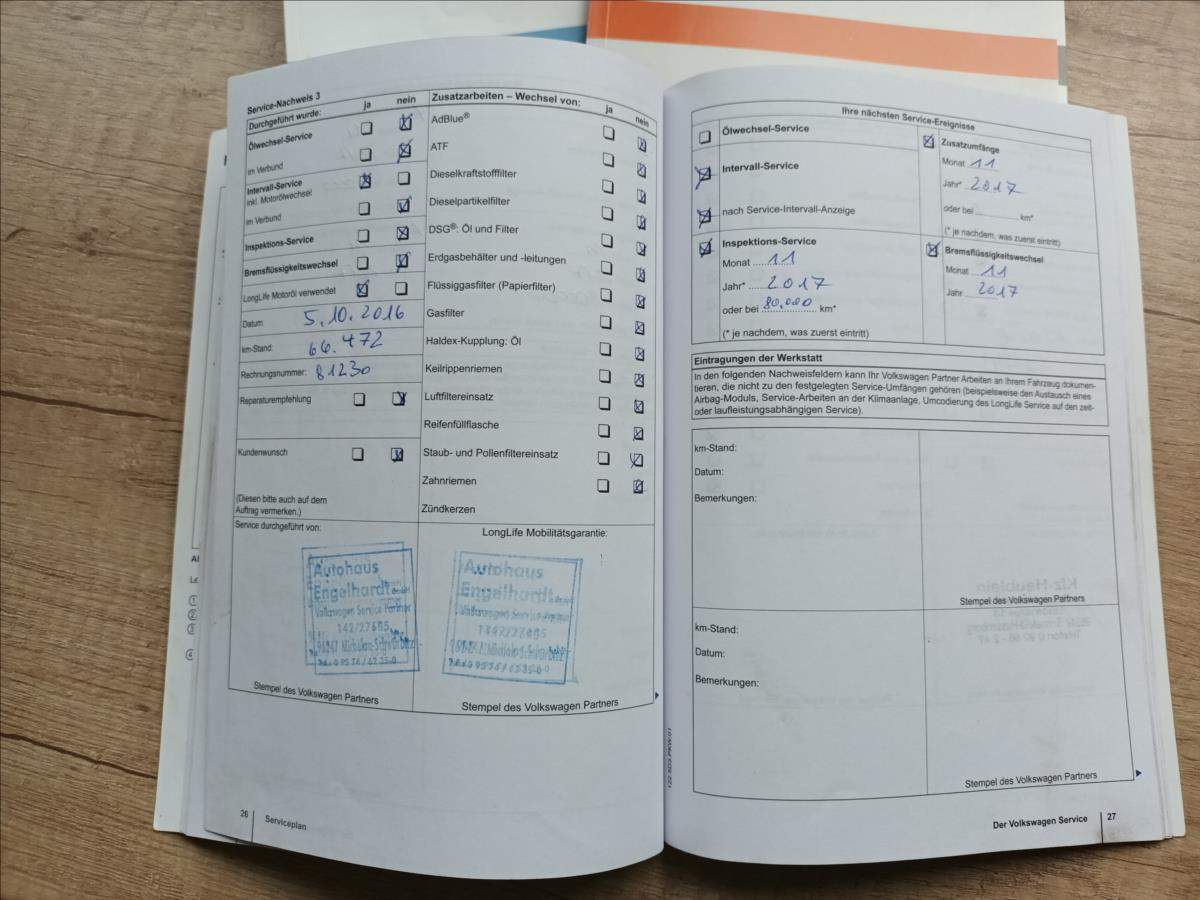 Service-Nachweis 3
Durchgeführt wurde:
ja
nein
Ölwechsel-Service
im Verbund
Intervall-Service
inkl. Motorölwechsel
im Verbund
Inspektions-Service
Bremsflüssigkeitswechsel
LongLife Motoröl verwendet
Datum: 5.10.2016
km-Stand: 66.472
Rechnungsnummer: 81230
Reparaturempfehlung
Kundenwunsch
(Diesen bitte auch auf dem
Auftrag vermerken.)
Service durchgeführt von:
Autohaus
Engelhardt
Volkswagen Service Partner
142/27685
Stempel des Volkswagen Partners
Zusatzarbeiten – Wechsel von:
ja
nein
AdBlue®
ATF
Dieselkraftstofffilter
Dieselpartikelfilter
DSG®: Öl und Filter
Erdgasbehälter und -leitungen
Flüssiggasfilter (Papierfilter)
Gasfilter
Haldex-Kupplung: Öl
Keilrippenriemen
Luftfiltereinsatz
Reifenfüllflasche
Staub- und Pollenfiltereinsatz
Zahnriemen
Zündkerzen
LongLife Mobilitätsgarantie:
Autohaus
Engelhardt
Volkswagen Service Partner
142/27685
Stempel des Volkswagen Partners
26
Serviceplan
Ihre nächsten Service-Ereignisse
Ölwechsel-Service
Intervall-Service
nach Service-Intervall-Anzeige
Inspektions-Service
Monat 11
Jahr* 2017
oder bei 80.000 km*
(* je nachdem, was zuerst eintritt)
Zusatzumfänge
Monat 11
Jahr* 2017
oder bei km*
(* je nachdem, was zuerst eintritt)
Bremsflüssigkeitswechsel
Monat 11
Jahr 2017
Eintragungen der Werkstatt
In den folgenden Nachweisfeldern kann Ihr Volkswagen Partner Arbeiten an Ihrem Fahrzeug dokumen-
tieren, die nicht zu den festgelegten Service-Umfängen gehören (beispielsweise den Austausch eines
Airbag-Moduls, Service-Arbeiten an der Klimaanlage, Umcodierung des LongLife Service auf den zeit-
oder laufleistungsabhängigen Service).
km-Stand:
Datum:
Bemerkungen:
Stempel des Volkswagen Partners
km-Stand:
Datum:
Bemerkungen:
Stempel des Volkswagen Partners
Der Volkswagen Service
27